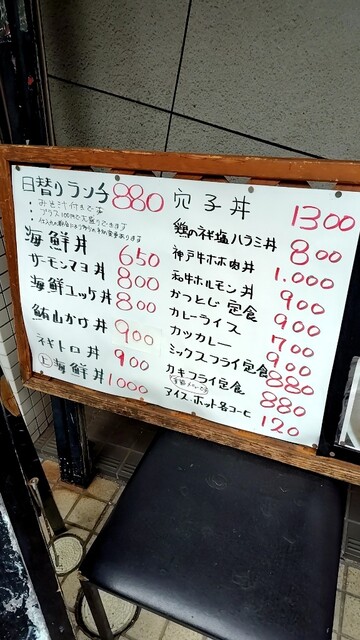 日替りランチ 880
・みそ汁付きです
・プラス100円で大盛りできます
海鮮丼 650
サーモンマヨ丼 800
海鮮ユッケ丼 800
鮪山かけ丼 900
ネギトロ丼 900
上海鮮丼 1000
穴子丼 1300
鶏のネギ塩ハラミ丼 800
神戸牛ホホ肉丼 1.000
和牛ホルモン丼 900
かつとじ定食 900
カレーライス 700
カツカレー 900
ミックスフライ定食 880
カキフライ定食 880
アイス・ホット各コーヒ 120